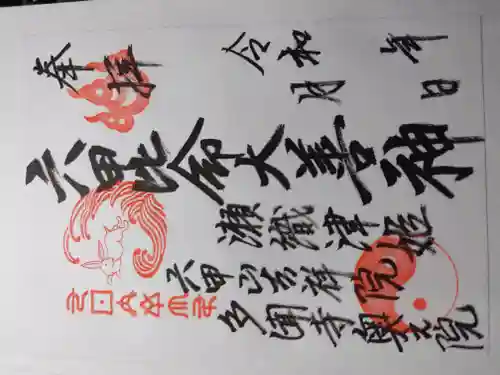 令和 年 月 日
奉拝
六甲比命大善神
瀬織津姫
六甲山吉祥院
多聞寺奥之院